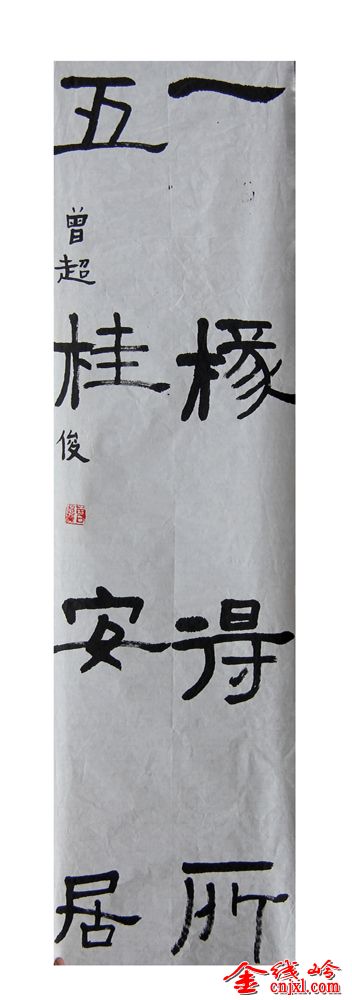 一椽得所
五桂安居
曾超俊
金线岭
cnjxl.com